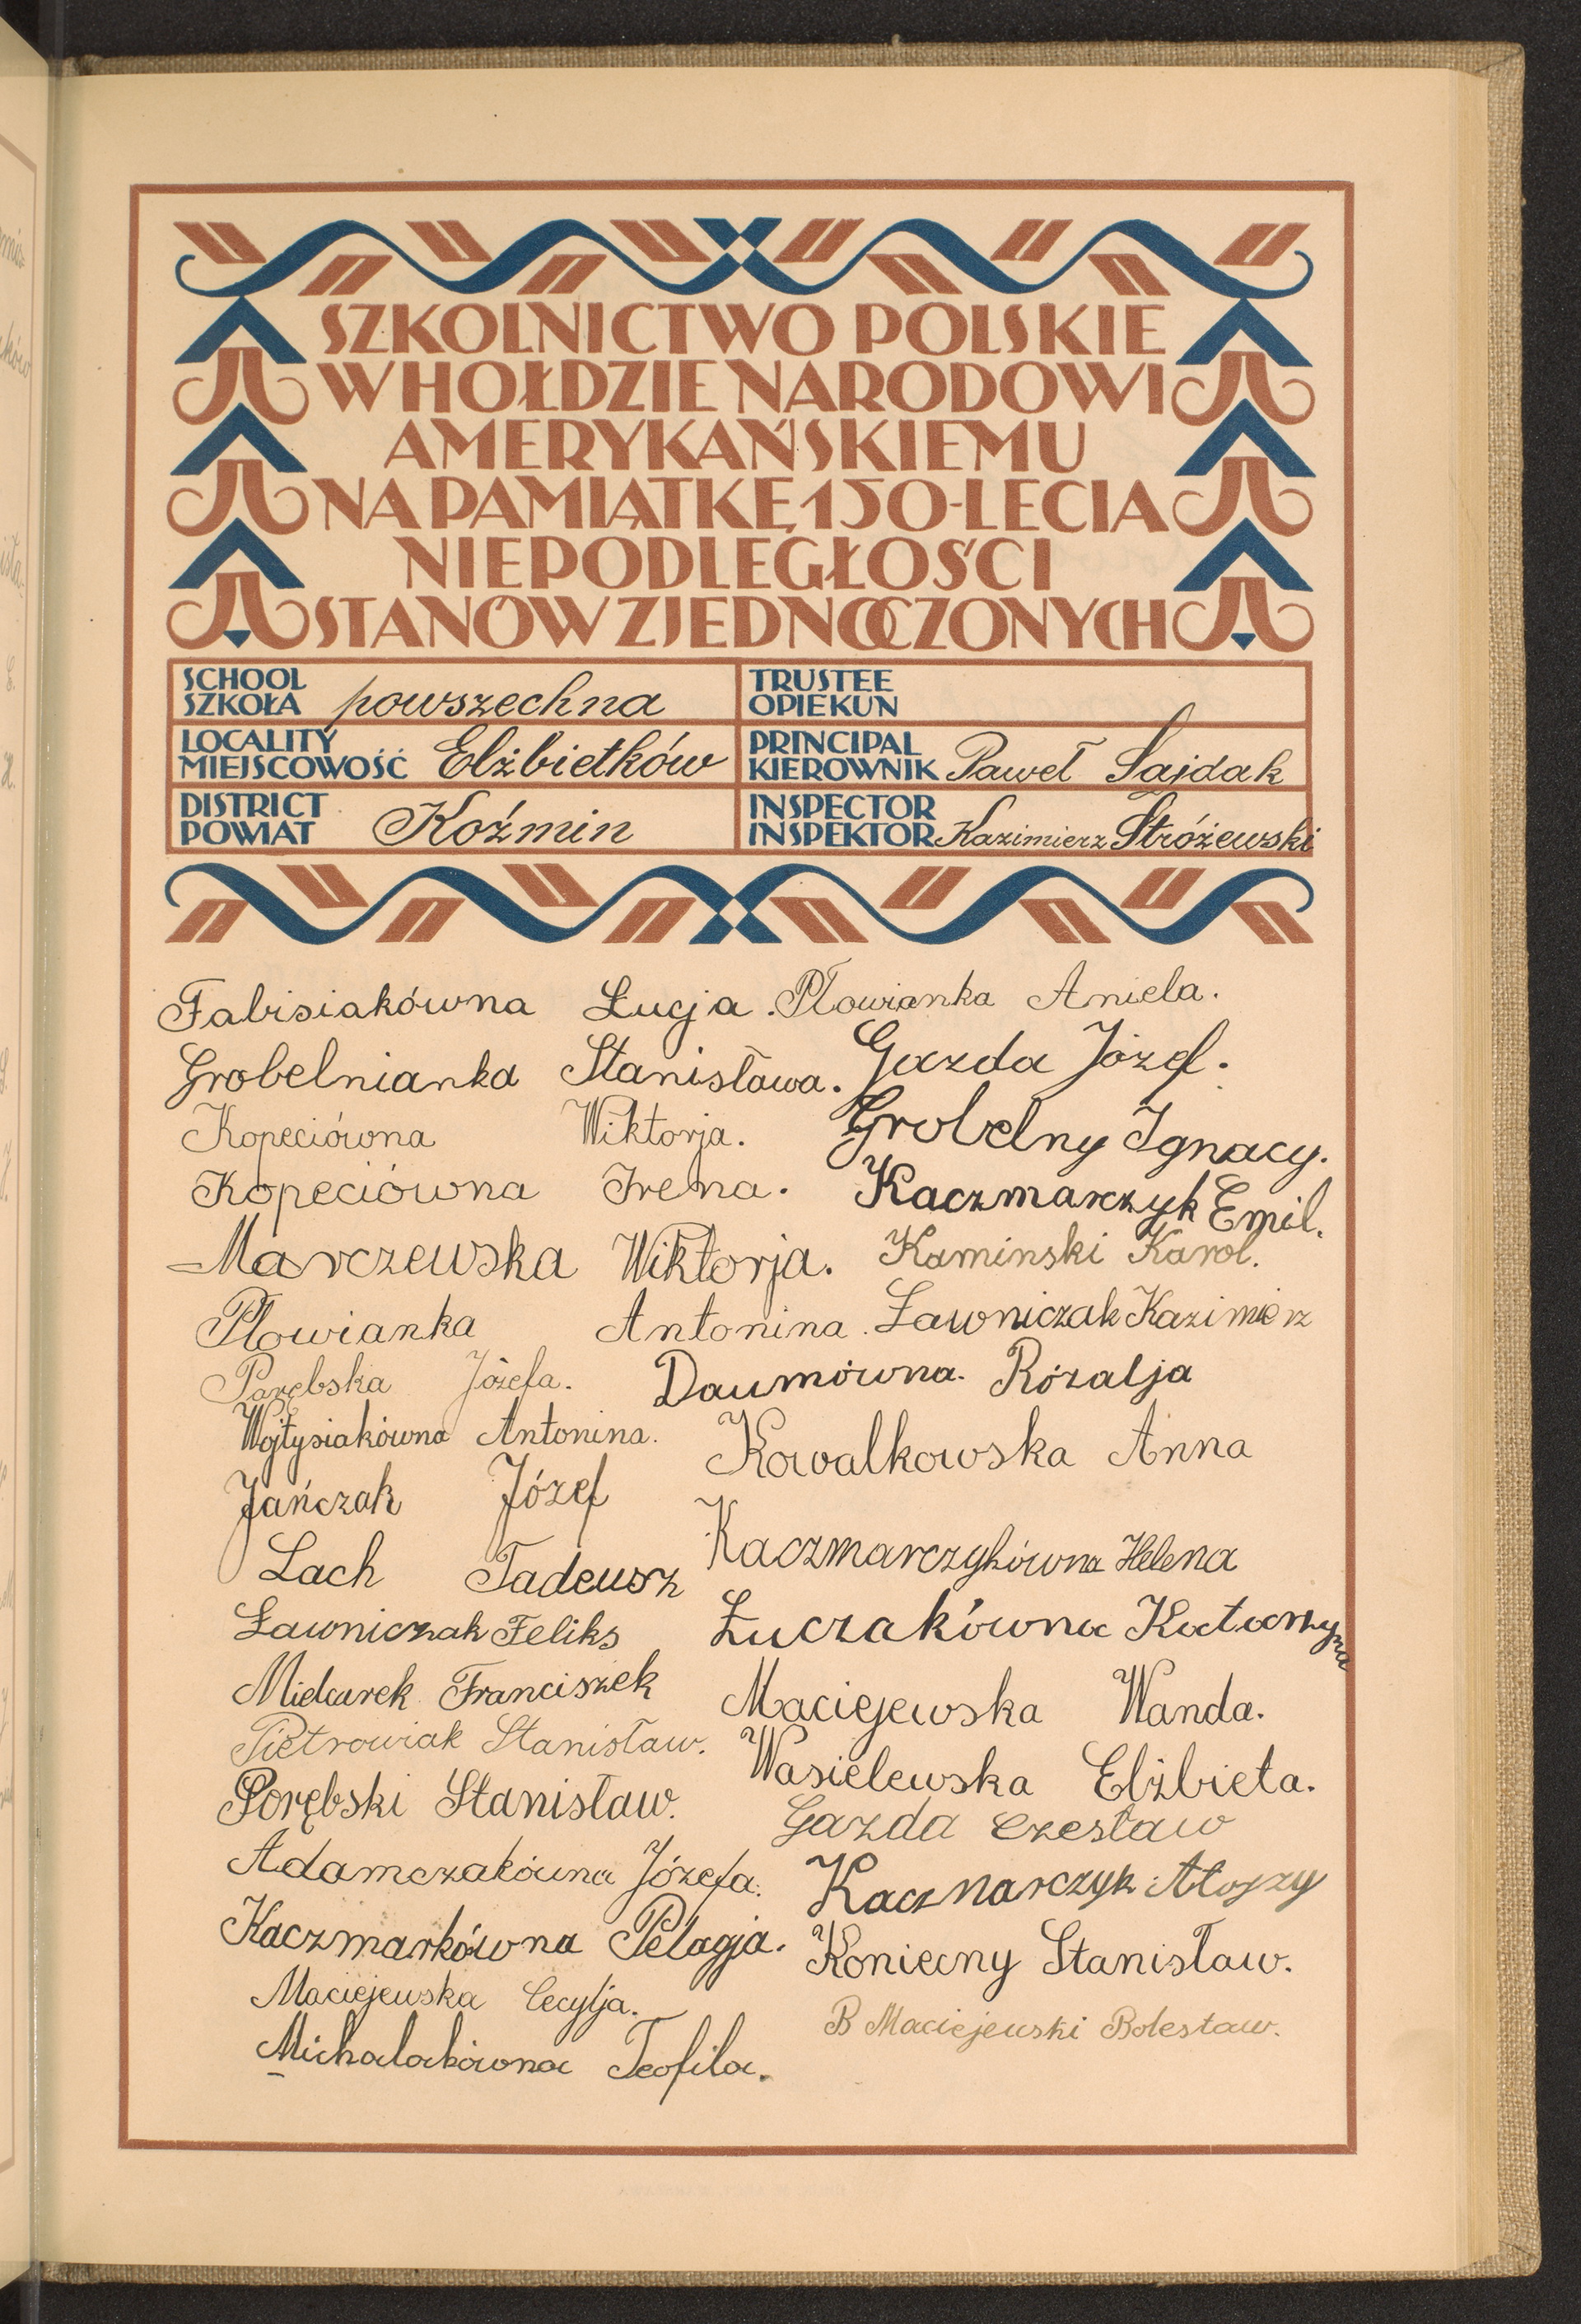 SZKOLNICTWO POLSKIE
W HOŁDZIE NARODOWI
AMERYKAŃSKIEMU
NA PAMIĄTKĘ 150-LECIA
NIEPODLEGŁOŚCI
STANÓW ZJEDNOCZONYCH
SCHOOL
SZKOŁA powszechna
TRUSTEE
OPIEKUN
LOCALITY
MIEJSCOWOŚĆ Elżbietków
PRINCIPAL
KIEROWNIK Paweł Sajdak
DISTRICT
POWIAT Koźmin
INSPECTOR
INSPEKTOR Kazimierz Stróżewski
Fabisiakówna Łucja.
Grobelnianka Stanisława.
Kopeciówna Wiktorja.
Kopeciówna Irena.
Marczewska Wiktorja.
Plowianka Antonina.
Parębska Józefa.
Wojtysiakówna Antonina.
Jańczak Józef
Lach Tadeusz
Ławniczak Feliks
Mielcarek Franciszek
Pietrowiak Stanisław.
Porębski Stanisław.
Adamczakówna Józefa.
Kaczmarkówna Pelagja.
Maciejewska Cecylja.
Michalakówna Teofila.
Plowianka Aniela.
Gazda Józef.
Grobelny Ignacy.
Kaczmarczyk Emil.
Kaminski Karol.
Ławniczak Kazimierz
Daumówna. Rózalja
Kowalkowska Anna
Kaczmarczykówna Helena
Łuczakówna Katarzyna
Maciejewska Wanda.
Wasielewska Elżbieta.
Gazda Czesław
Kacznarczyk Alojzy
Koniecny Stanisław.
B Maciejewski Bolesław.